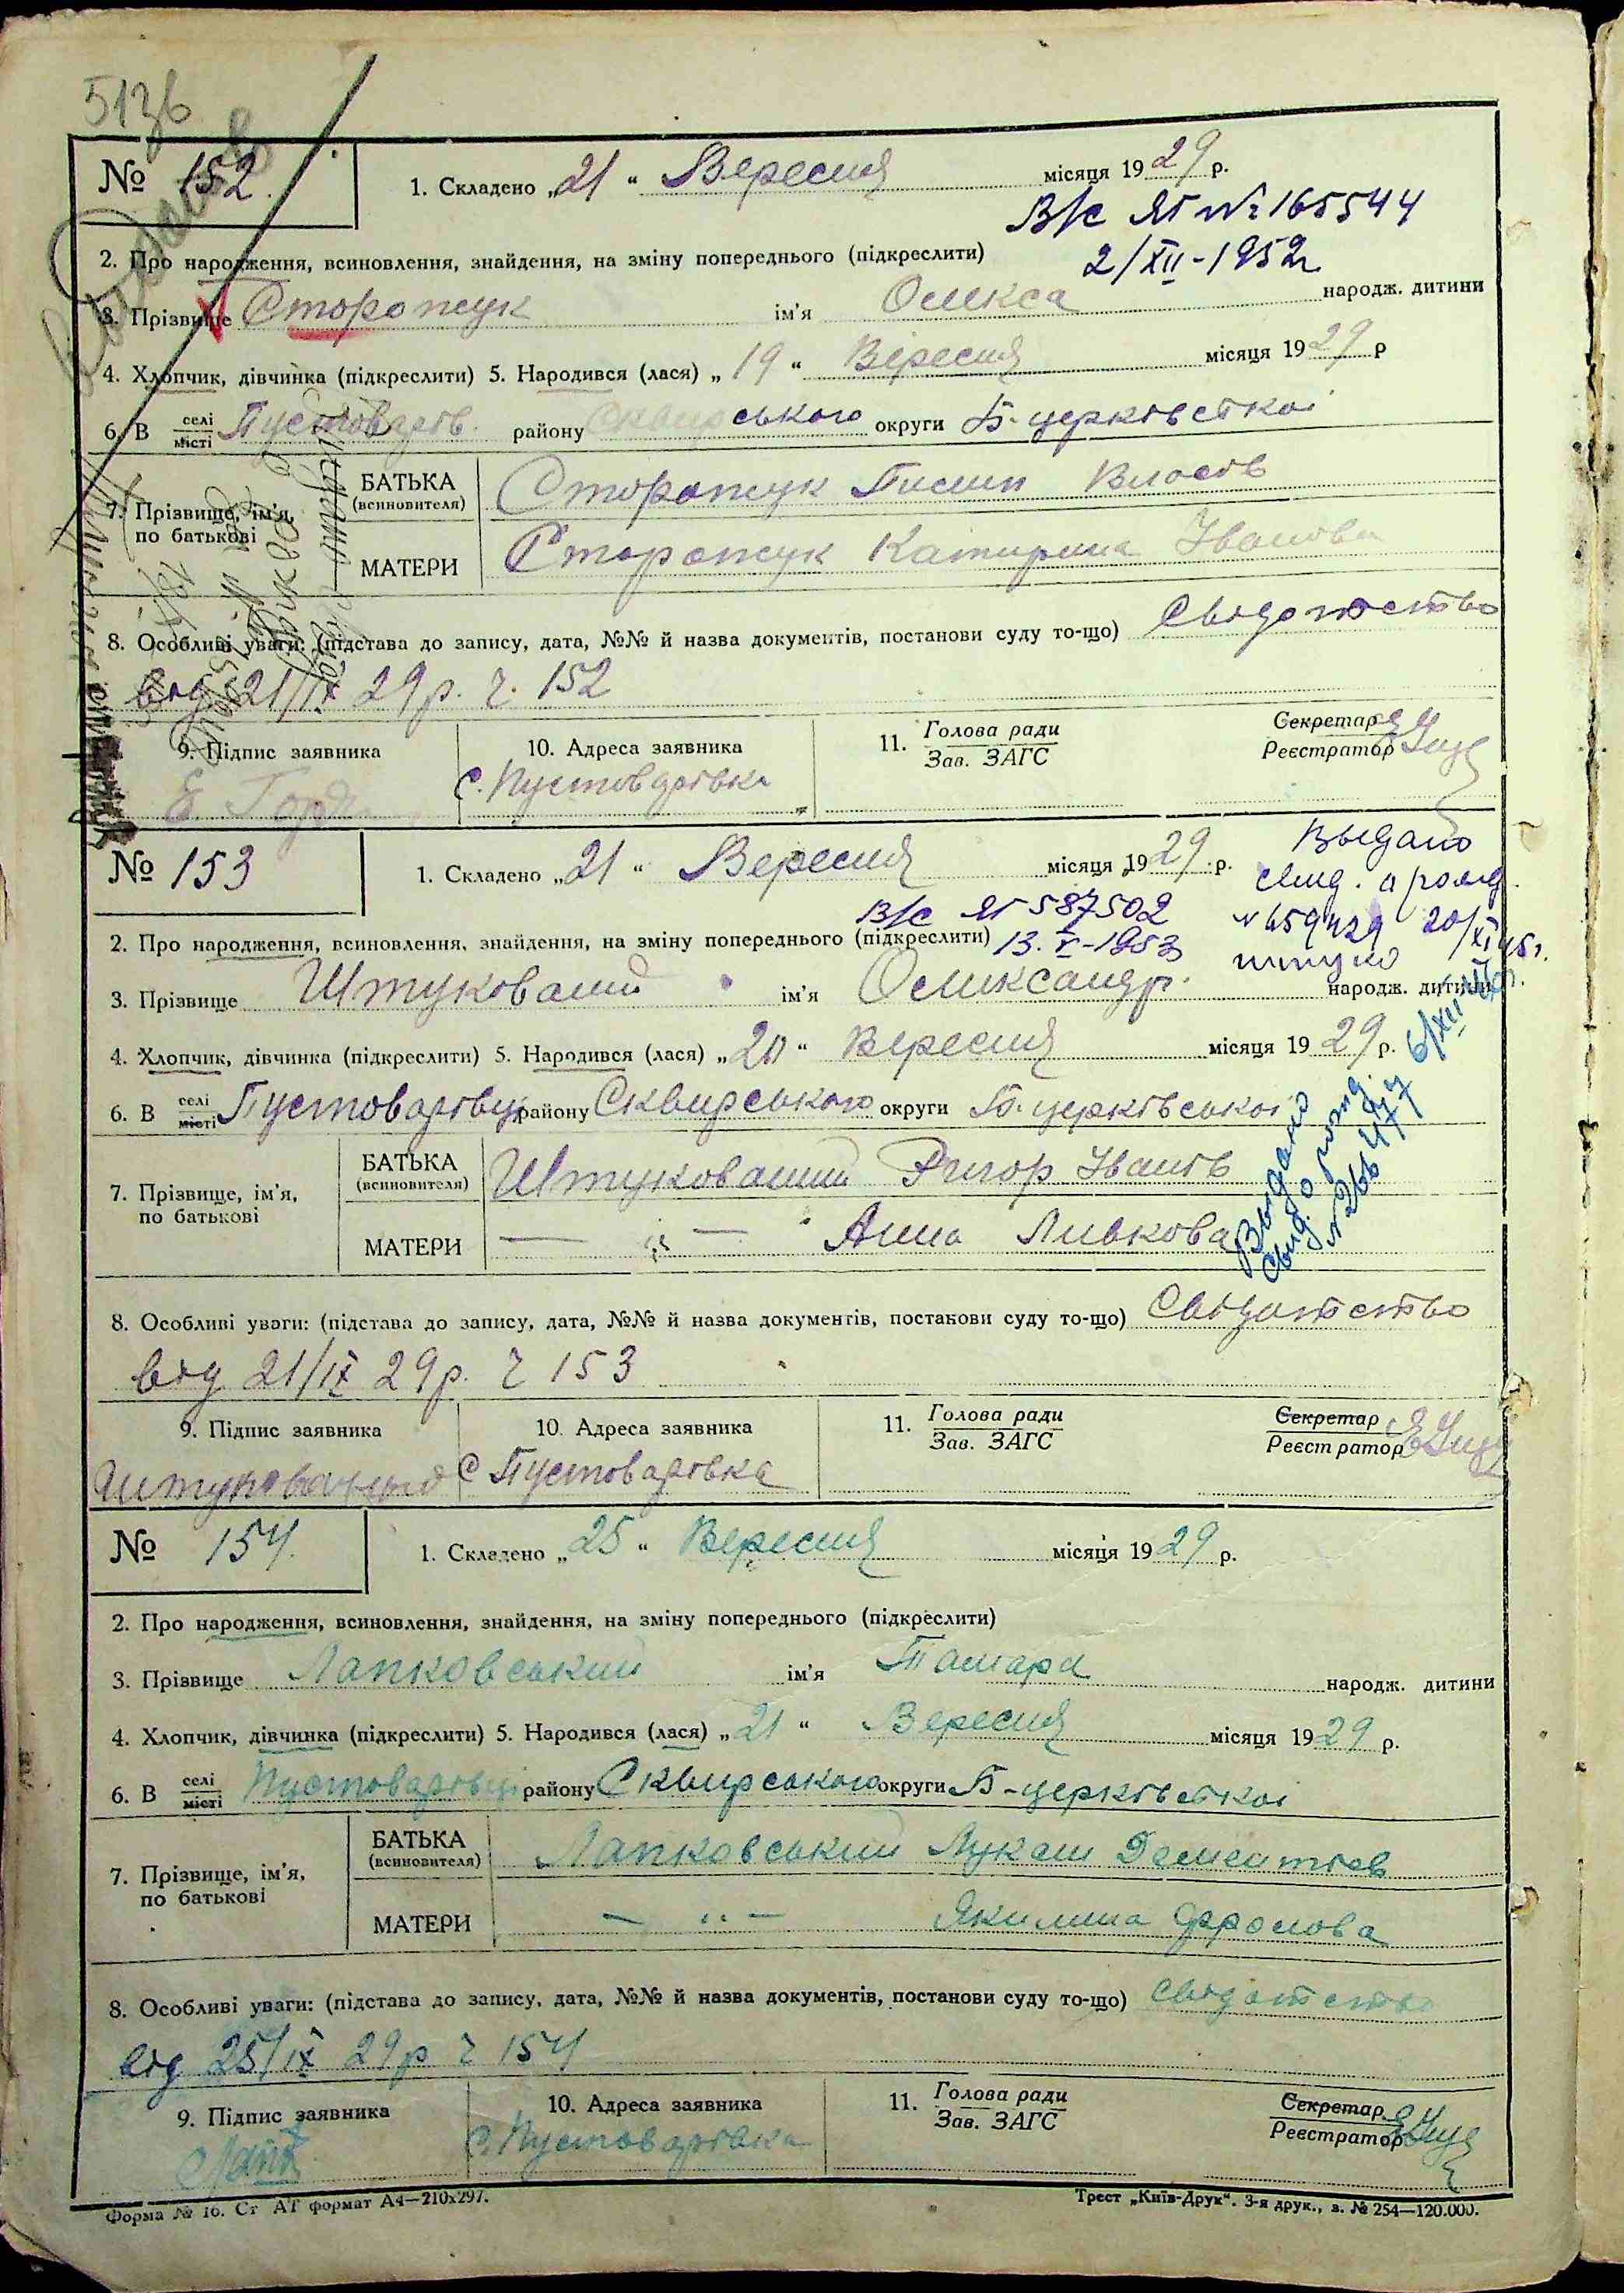 513б
№ 152.
1. Складено „21“ Вересня місяця 1929 р.
В/с ЯТ № 165544
2/XII-1952г
2. Про народження, всиновлення, знайдення, на зміну попереднього (підкреслити)
3. Прізвище Сторожук ім'я Олекса народж. дитини
4. Хлопчик, дівчинка (підкреслити) 5. Народився (лася) „19“ Вересня місяця 1929 р
6. В селі/місті Пустоварів. району Сквирського округи Б-церківської
7. Прізвище, ім'я, по батькові
БАТЬКА (всиновителя) Сторожук Пилип
МАТЕРИ Сторожук Катирина Іванова
8. Особливі уваги: (підстава до запису, дата, №№ й назва документів, постанови суду то-що) Свідотство
від 21/IX 29р. ч. 152
9. Підпис заявника
10. Адреса заявника
с. Пустоварівка
11. Голова ради
Зав. ЗАГС
Секретар
Реєстратор
№ 153
1. Складено „21“ Вересня місяця 1929 р.
Выдано
В/с ЯТ 587502
13. V-1953
№ 659429 20/XI 45г.
2. Про народження, всиновлення, знайдення, на зміну попереднього (підкреслити)
3. Прізвище Штукований ім'я Олександр. народж. дитини
4. Хлопчик, дівчинка (підкреслити) 5. Народився (лася) „20“ Вересня місяця 1929 р.
6. В селі/місті Пустоварівці району Сквирського округи Б-церківської
Выдано
свид. о рожд.
№ 266477
7. Прізвище, ім'я, по батькові
БАТЬКА (всиновителя) Штукований Ригор Іванів
МАТЕРИ — „ — Анна Ливкова
8. Особливі уваги: (підстава до запису, дата, №№ й назва документів, постанови суду то-що) Свідотство
від 21/IX 29р. ч 153
9. Підпис заявника
10. Адреса заявника
Штукованый
с Пустоварівка
11. Голова ради
Зав. ЗАГС
Секретар
Реєстратор
№ 154.
1. Складено „25“ Вересня місяця 1929 р.
2. Про народження, всиновлення, знайдення, на зміну попереднього (підкреслити)
3. Прізвище Лапковський ім'я Тамара народж. дитини
4. Хлопчик, дівчинка (підкреслити) 5. Народився (лася) „21“ Вересня місяця 1929 р.
6. В селі/місті Пустоварівці району Сквирського округи Б-церківської
7. Прізвище, ім'я, по батькові
БАТЬКА (всиновителя) Лапковський Лукаш Дементіев
МАТЕРИ — „ — Якилина Фролова
8. Особливі уваги: (підстава до запису, дата, №№ й назва документів, постанови суду то-що) Свідотство
від 25/IX 29р ч 154
9. Підпис заявника
10. Адреса заявника
с. Пустоварівка
11. Голова ради
Зав. ЗАГС
Секретар
Реєстратор
Форма № 16. Ст АТ формат А4—210х297.
Трест „Київ-Друк“. 3-я друк., з. № 254—120.000.